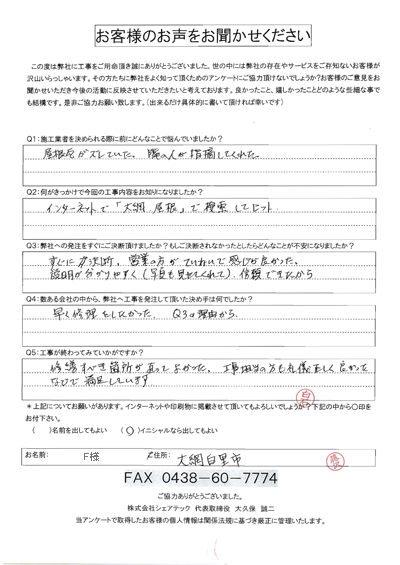 お客様のお声をお聞かせください
この度は弊社に工事をご用命頂き誠にありがとうございました。世の中には弊社の存在やサービスをご存知ないお客様が
沢山いらっしゃいます。その方たちに弊社をよく知って頂くためのアンケートにご協力頂けないでしょうか?お客様のご意見をお
聞かせいただき今後の活動に反映させていただきたいと考えております。良かったこと、嬉しかったことどのような些細な事で
も結構です。是非ご協力お願い致します。(出来るだけ具体的に書いて頂ければ幸いです)
Q1:施工業者を決められる際に前にどんなことで悩んでいましたか?
屋根瓦がズレていた。隣の人が指摘してくれた。
Q2:何がきっかけで今回の工事内容をお知りになりましたか?
インターネットで「大網 屋根」で検索してヒット
Q3:弊社への発注をすぐにご決断頂けましたか?もしご決断されなかったとしたらどんなことが不安になりましたか?
すぐに決断。営業の方がていねいで感じが良かった。
説明が分かりやすく(写真も見せてくれて)信頼できたから
Q4:数ある会社の中から、弊社へ工事を発注して頂いた決め手は何でしたか?
早く修理をしたかった。Q3の理由から。
Q5:工事が終わってみていかがですか?
修繕すべき箇所が直ってよかった。工事担当の方も礼儀正しく良かった
なので満足しています
*上記についてお願いがあります。インターネットや印刷物に掲載させて頂いてもよろしいでしょうか?下記の中から〇印を
お付け下さい。
( )名前を出してもよい (〇)イニシャルなら出してもよい
お名前: F様 ご住所: 大網白里市
FAX 0438-60-7774
ご協力ありがとうございました。
株式会社シェアテック 代表取締役 大久保 誠二
当アンケートで取得したお客様の個人情報は関係法規に基づき厳正に管理いたします。